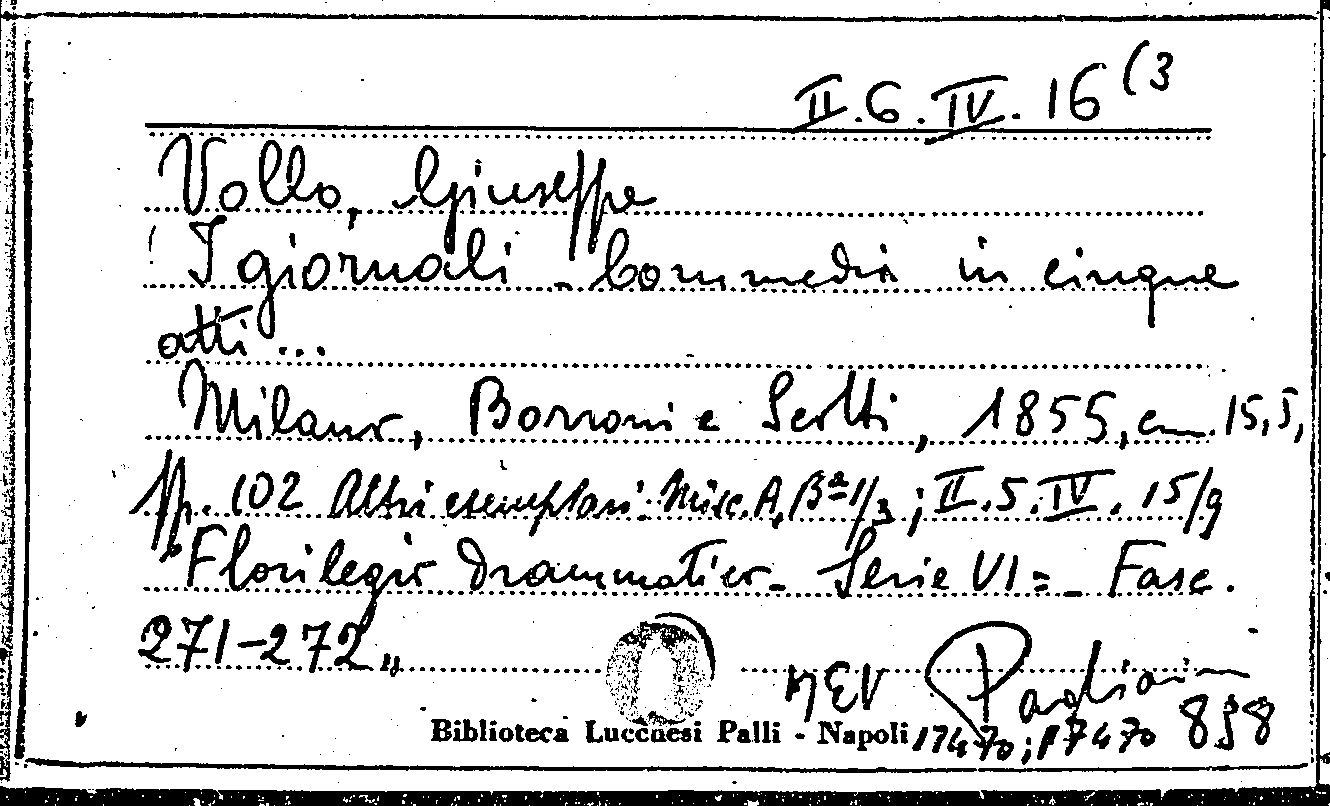 II.6.IV.16(3
Vollo, Giuseppe
I giornali - Commedia in cinque
atti ...
Milano, Borroni e Scotti, 1855, cm. 15,5,
pp. 102 Altri esemplari: Misc. A, Bª 1/3; II.5.IV.15/9
"Florilegio drammatico - Serie VI = - Fasc.
271-272"
Biblioteca Lucchesi Palli - Napoli 17470; 17470